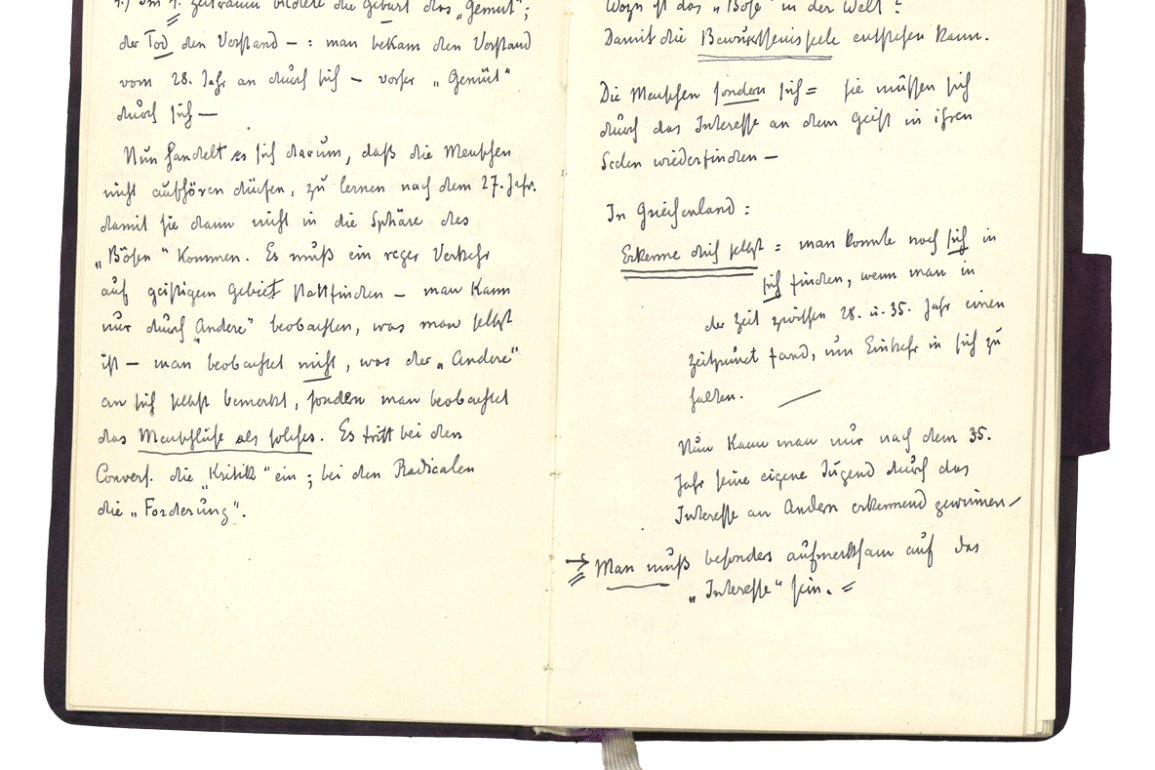 1.) Im 1. Zeitraum bildete die Geburt das „Gemüt";
der Tod den Verstand – : man bekam den Verstand
vom 28. Jahr an durch sich – vorher „Gemüt"
durch sich —
Nun handelt es sich darum, daß die Menschen
nicht aufhören dürfen, zu lernen nach dem 27. Jahr.
damit sie dann nicht in die Sphäre des
„Bösen" kommen. Es muß ein reger Verkehr
auf geistigem Gebiet stattfinden – man kann
nur durch „Andere" beobachten, was man selbst
ist – man beobachtet nicht, was der „Andere"
an sich selbst bemerkt, sondern man beobachtet
das Menschliche als solches. Es tritt bei den
Conserv. die „Kritik" ein; bei den Radicalen
die „Forderung".
Wozu ist das „Böse" in der Welt?
Damit die Bewusstseinsseele entstehen kann.
Die Menschen sondern sich = sie müssen sich
durch das Interesse an dem Geist in ihren
Seelen wiederfinden –
In Griechenland:
Erkenne dich selbst = man konnte noch sich in
sich finden, wenn man in
der Zeit zwischen 28. u. 35. Jahr einen
Zeitpunct fand, um Einkehr in sich zu
halten.
Nun kann man nur nach dem 35.
Jahr seine eigene Jugend durch das
Interesse an Andern erkennend gewinnen
→ Man muß besonders aufmerksam auf das
„Interesse" sein. =